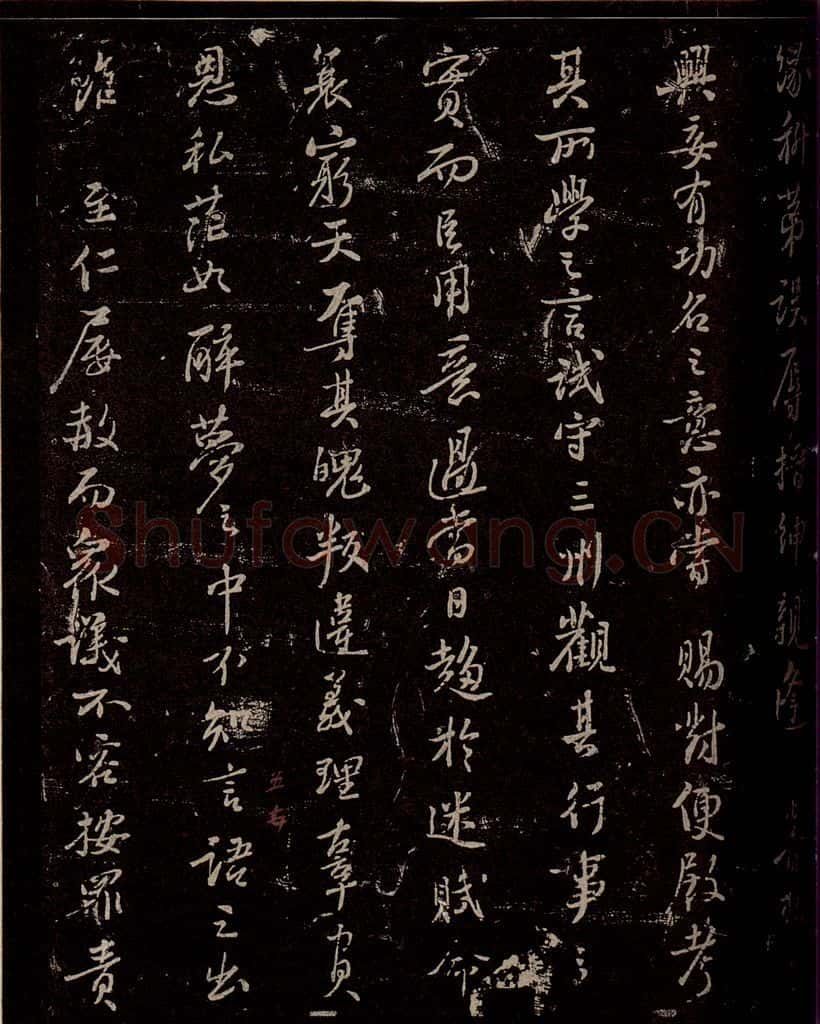 緣科第誤辱搢紳親逢
興妄有功名之意亦嘗 賜對便殿考
其所學之言試守三州觀其行事之
實而臣用意過當日趨於迷賦命
衰窮天奪其魄叛違義理辜負
恩私茫如醉夢之中不知言語之出
雖 至仁屢赦而衆議不容按罪責
Shufawang.CN